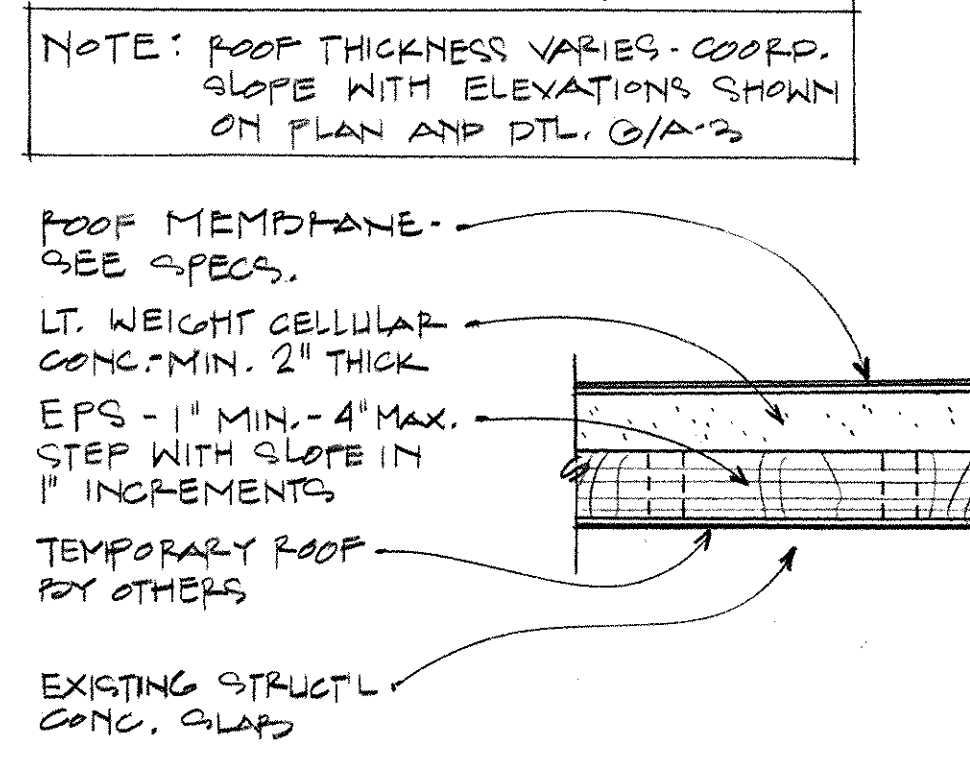 NOTE: ROOF THICKNESS VARIES - COORD.
SLOPE WITH ELEVATIONS SHOWN
ON PLAN AND DTL. G/A-3
ROOF MEMBRANE-
SEE SPECS.
LT. WEIGHT CELLULAR
CONC.-MIN. 2" THICK
EPS - 1" MIN.- 4" MAX.
STEP WITH SLOPE IN
1" INCREMENTS
TEMPORARY ROOF
BY OTHERS
EXISTING STRUCT'L
CONC. SLAB